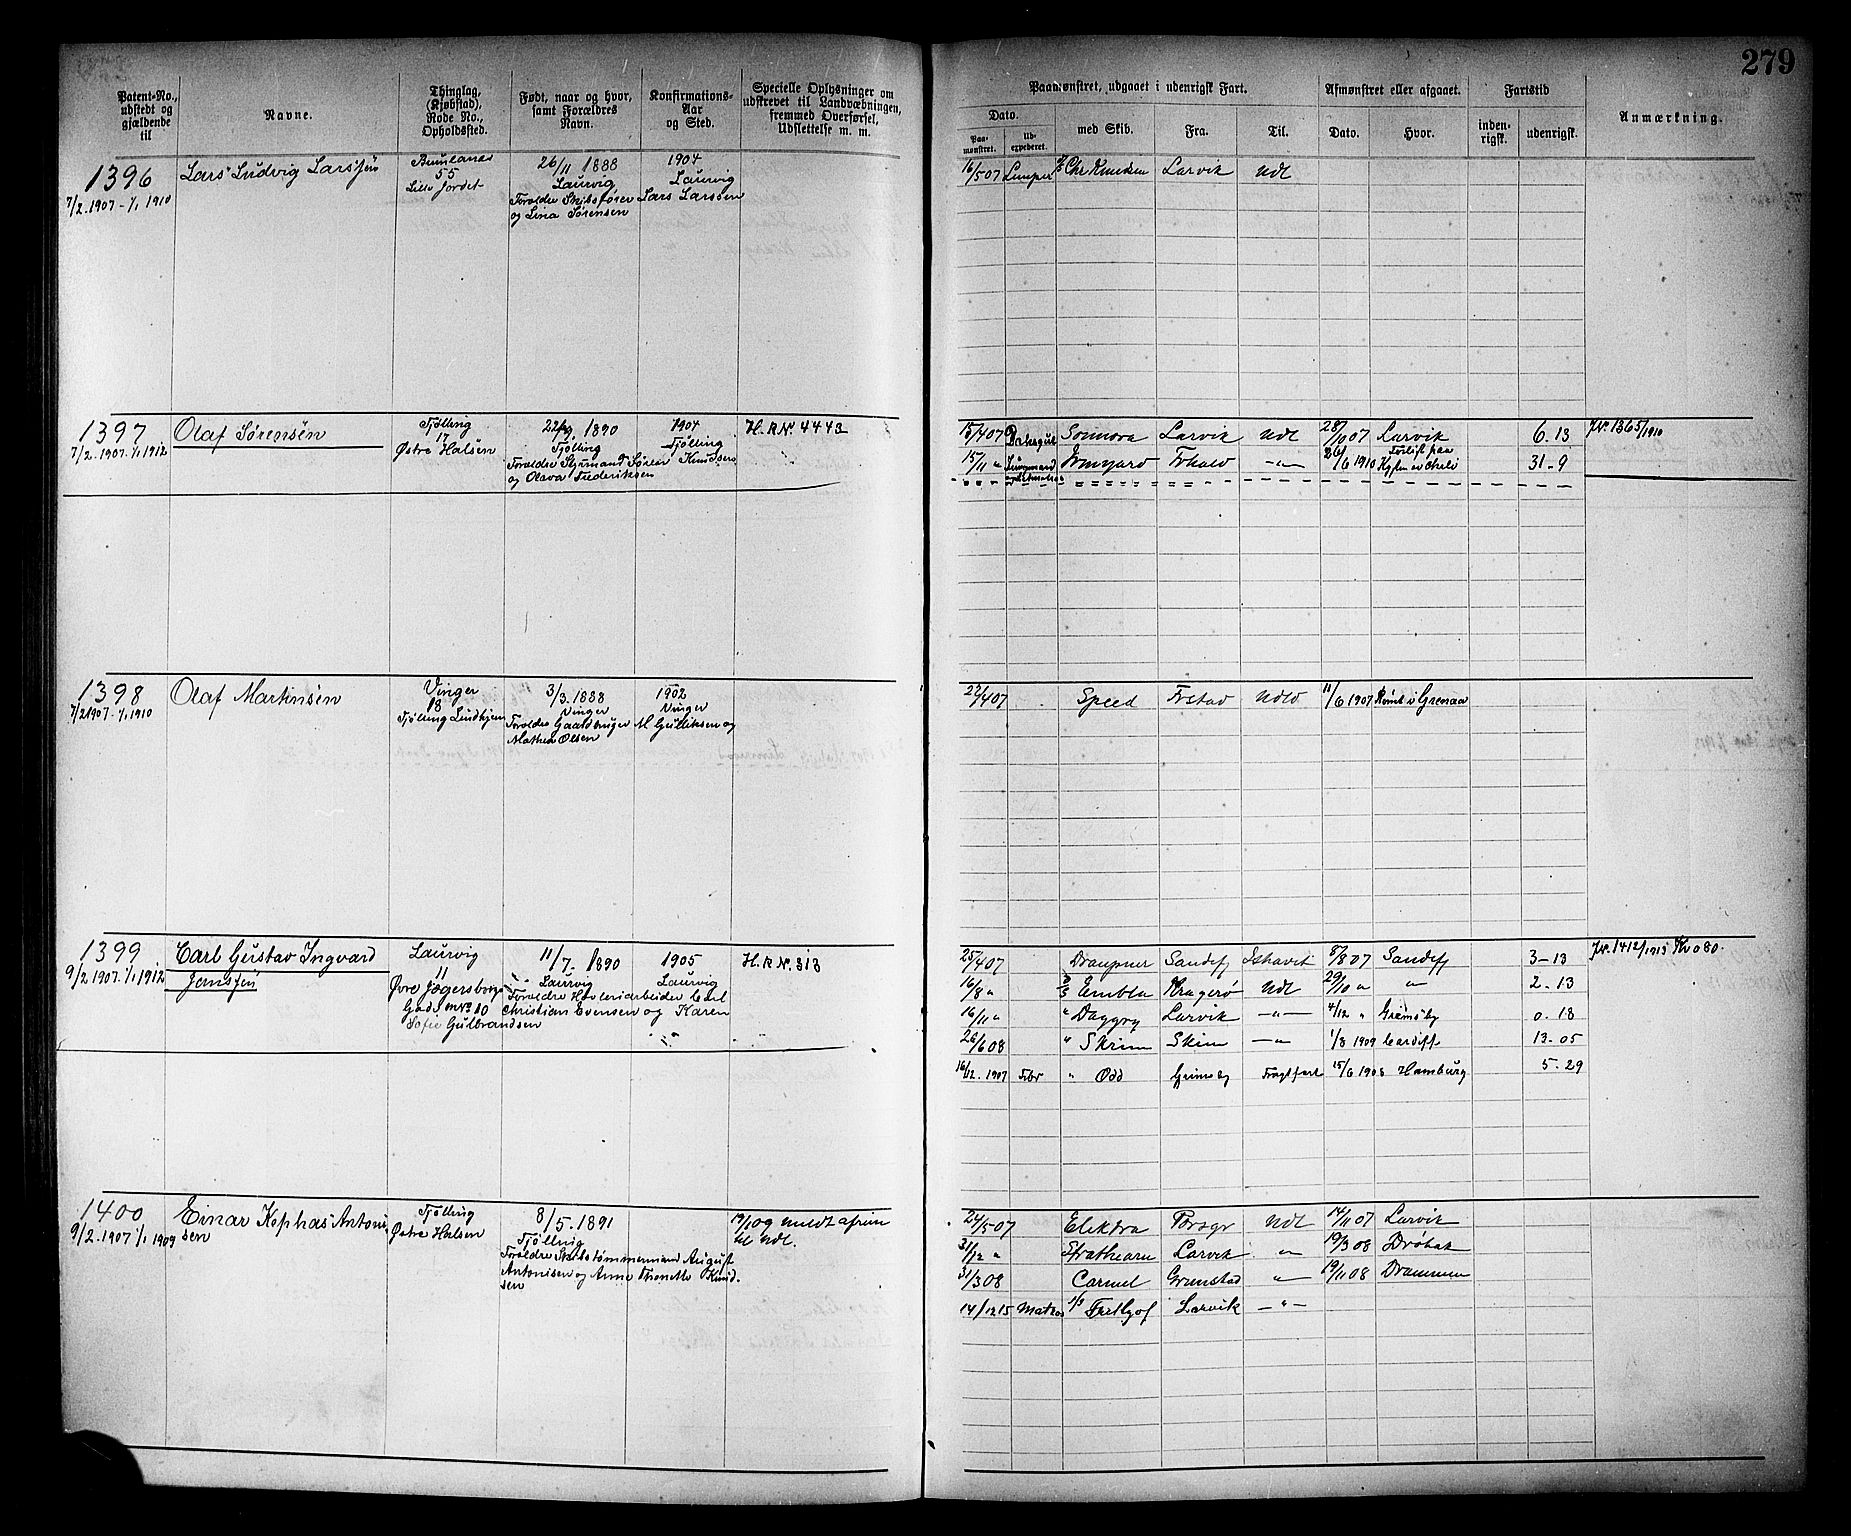 279
Patent-No., udstedt og gjældende til
Navne.
Thinglag, (Kjøbstad), Rode No., Opholdssted.
Født, naar og hvor, samt Forældres Navn.
Konfirmations-Aar og Sted.
Specielle Oplysninger om udstrevet til Landvæbningen, fremmed Overførsel, Udslettelse m. m.
Paamønstret, udgaaet i udenrigsk Fart.
Dato.
Paa-mønstret.
Ud-expederet.
med Skib.
Fra.
Til.
Afmønstret eller afgaaet.
Dato.
Hvor.
Fartstid
inden-rigsk.
udenrigsk.
Anmærkning.
1396
7/2. 1907 - 1/1 1910
Lars Ludvig Larssen
Brunlanæs
55
Lille Jordet
26/11 1888
Laurvig
Forældre Skibsfører Lars Larssen
og Lina Sørensen
1904
Laurvig
16/5 07 Lemper Chr Knudsen Larvik Udl
1397
7/2. 1907. 1/1 1912
Olaf Sørensen
Tjølling
17
Østre Halsen
1890
Tjølling
Forældre Styrmand Søren Knudsen
og Olava Frederiksen
1904
Tjølling
H.R.No. 4443
15/4 07 Sonnora Larvik Udl 28/10 07 Larvik 6. 13
15/11 " Jungmand Frhald -"- 26/6 1910 Forlist paa Kysten av Chili 31-9
J.No. 1365/1910
1398
7/2 1907. 1/1 1910
Olaf Martinsen
Vinger
18
Tjølling Lindhjem
3/3. 1888
Vinger
Forældre Gaardbruger M Gulliksen og
Mathea Olsen
1902
Vinger
22/4 07 Speed Frstad Udld 11/6 1907 Rømt i Grenaa
1399
9/2. 1907. 1/1 1912
Carl Gustav Ingvard
Jenssen
Laurvig
11
Øvre Jægersborgs
Gade No 10
11/7. 1890
Laurvig
Forældre Høvleriarbeider Carl
Christian Evensen og Karen
Sofie Gulbrandsen
1905
Laurvig
H.R.No. 313
25/4 07 Draupner Sandefj Ishavet 8/8 07 Sandefj 3-13
16/8 " Embla Kragerø Udl 29/10 " " 2. 13
16/11 " " Daggry Larvik -"- 4/12 " Grimsby 0. 18
26/6 08 " Skrim Skien -"- 1/8 1909 Cardiff 13-05
16/12. 1907 Fbr " Odd Grimsby Fragtfart 15/6 1908 Hamburg 5-29
J.No. 1412/1913
1400
9/2. 1907 1/1 1909
Einar Kephas Antoni-
sen
Tjølling
Østre Halsen
8/5. 1891
Tjølling
Forældre Skibstømmermand August
Antonisen og Anne Thonette Knud-
sen
19/1 09 meldt afreise
til Udl.
24/5 07 Elektra Porsgr Udl 14/11 07 Larvik
31/12 " Strathearn Larvik " 19/3 08 Drøbak
31/3 08 Carmel Grimstad " 19/11 08 Drammen
14/12 15 Matros S/S Frithjof Larvik -"-